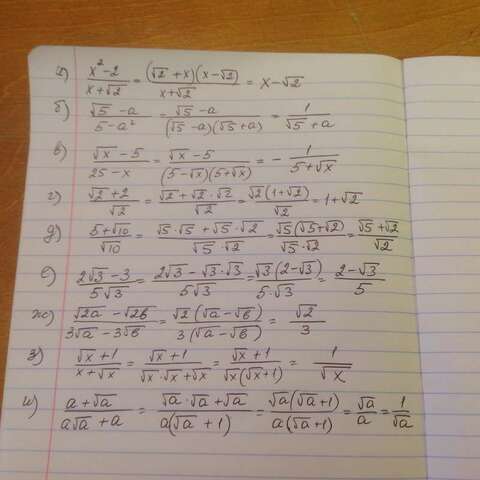 а) (x² - 2)/(x + √2) = ((√2 + x)(x - √2))/(x + √2) = x - √2
б) (√5 - a)/(5 - a²) = (√5 - a)/((√5 - a)(√5 + a)) = 1/(√5 + a)
в) (√x - 5)/(25 - x) = (√x - 5)/((5 - √x)(5 + √x)) = - 1/(5 + √x)
г) (√2 + 2)/√2 = (√2 + √2 · √2)/√2 = (√2(1 + √2))/√2 = 1 + √2
д) (5 + √10)/√10 = (√5 · √5 + √5 · √2)/(√5 · √2) = (√5(√5 + √2))/(√5 · √2) = (√5 + √2)/√2
е) (2√3 - 3)/(5√3) = (2√3 - √3 · √3)/(5√3) = (√3(2 - √3))/(5 · √3) = (2 - √3)/5
ж) (√2a - √2b)/(3√a - 3√b) = (√2(√a - √b))/(3(√a - √b)) = √2/3
з) (√x + 1)/(x + √x) = (√x + 1)/(√x · √x + √x) = (√x + 1)/(√x(√x + 1)) = 1/√x
и) (a + √a)/(a√a + a) = (√a · √a + √a)/(a(√a + 1)) = (√a(√a + 1))/(a(√a + 1)) = √a/a = 1/√a